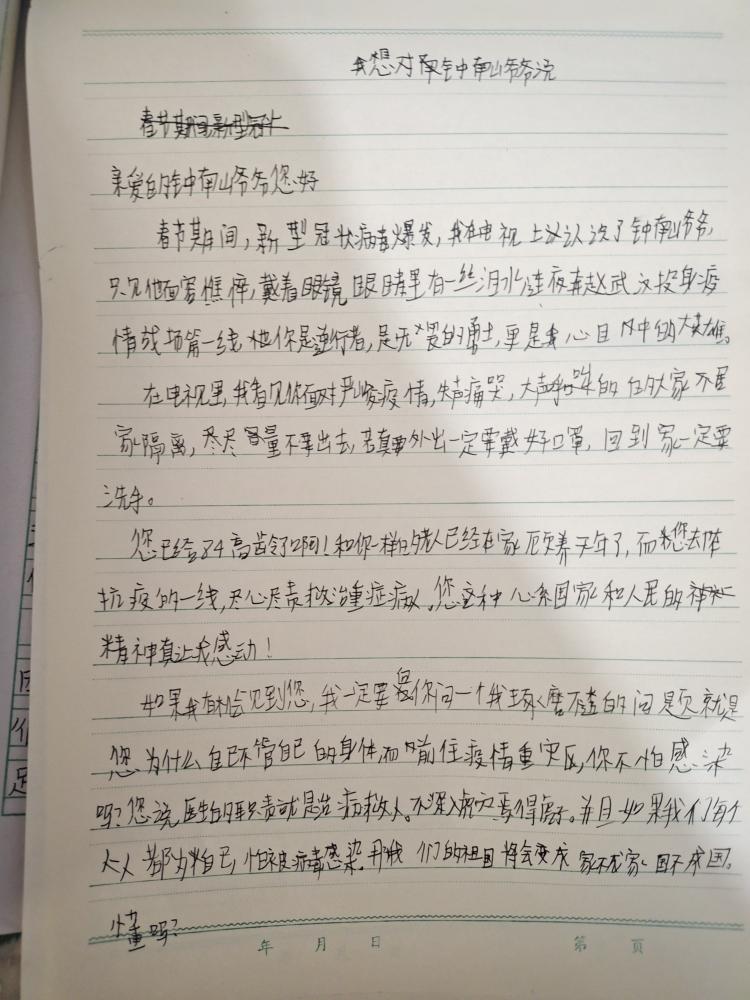 我想对钟南山爷爷说
春节期间新型冠
亲爱的钟南山爷爷您好
春节期间，新型冠状病毒爆发，我在电视上认识了钟南山爷爷，
只见他面容憔悴，戴着眼镜，眼睛里有一丝泪水，连夜奔赴武汉投身疫
情战场第一线，你是逆行者，是无畏的勇士，更是我心目中的大英雄。
在电视里，我看见你面对严峻疫情，失声痛哭，大声呼吁大家不
家隔离，尽量不要出去，若真要外出一定要戴好口罩，回到家一定要
洗手。
您已经84高龄了啊！和你一样的老人已经在家颐养天年了，而您去
抗疫的一线，尽心尽责救治重症病人，您这种心系国家和人民的
精神真让我感动！
如果我有机会见到您，我一定要你问一个我琢磨不透的问题就是
您为什么自己不管自己的身体，而前往疫情重灾区，你不怕感染
吗？您说医生的职责就是治病救人。不深入虎穴焉得虎子。并且如果我们每个
人都为自己，怕被病毒感染，我们的祖国将会变成家不成家国不成国。
懂吗？
年 月 日 第 页